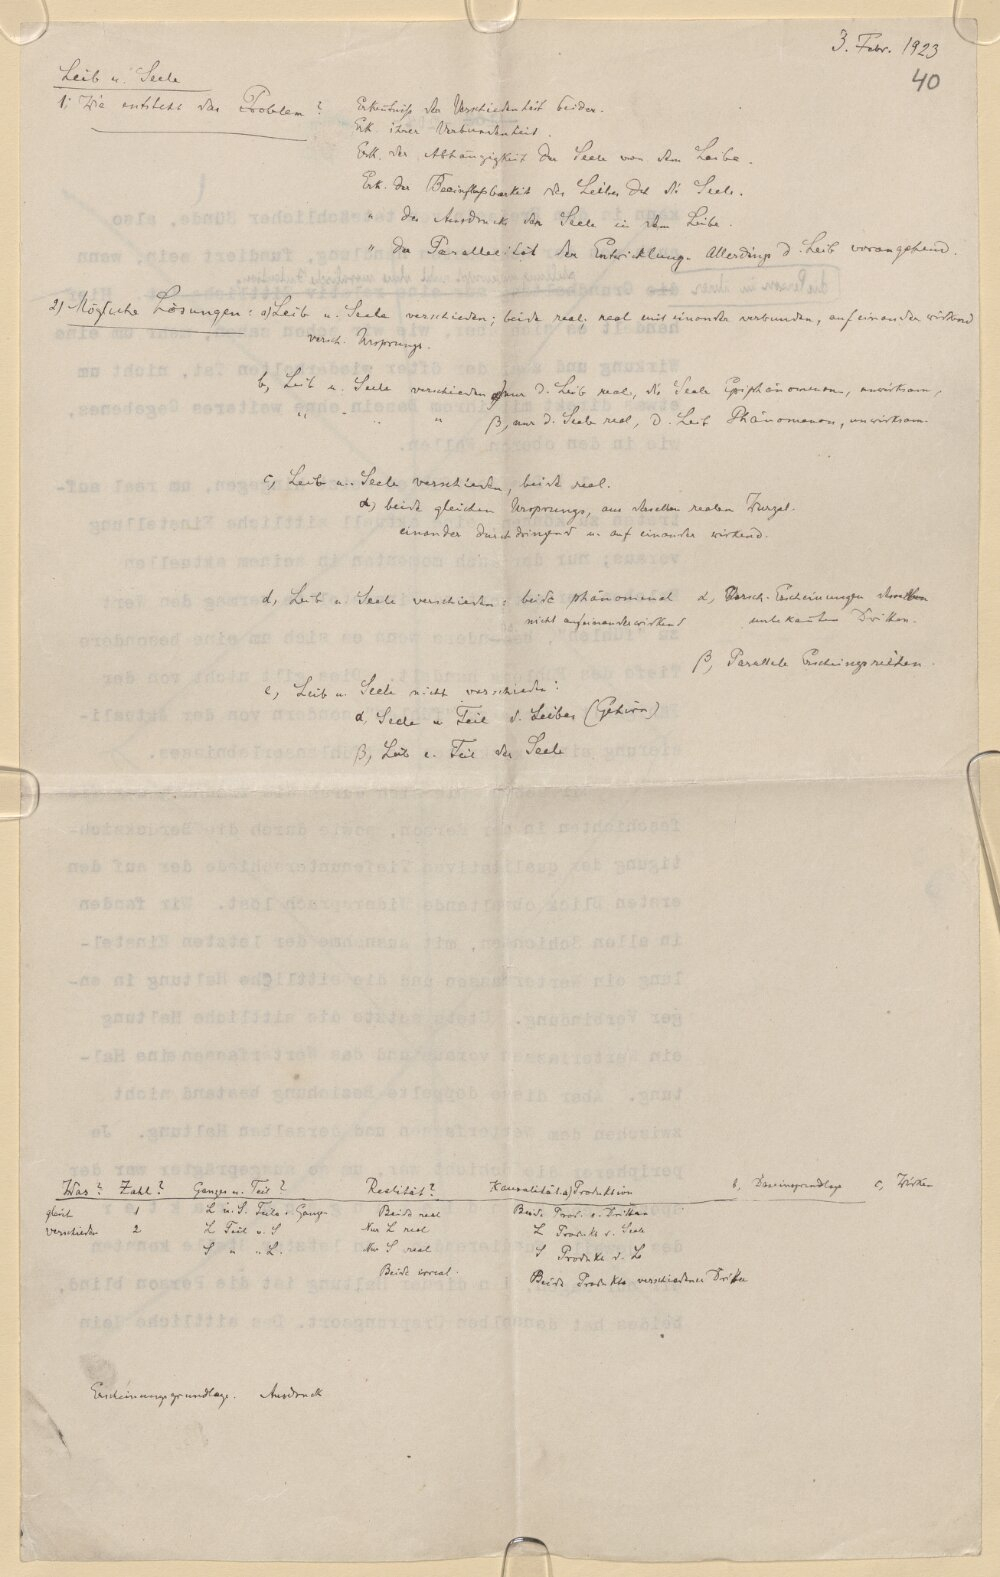 3. Febr. 1923
40
Leib u. Seele
1; Wie entsteht das Problem? Erkenntniß der Verschiedenheit beider.
Erk. ihrer Verbundenheit.
Erk. der Abhängigkeit der Seele von dem Leibe.
Erk. der Beeinflußbarkeit des Leibes dch die Seele.
" des Ausdrucks der Seele in dem Leibe.
" der Parallelität der Entwicklung. Allerdings d. Leib vorangehend.
2) Mögliche Lösungen: a) Leib u. Seele verschieden; beide real, real miteinander verbunden, aufeinander wirkend
versch. Ursprungs.
b, Leib u. Seele verschieden α, nur d. Leib real, die Seele Epiphänomenon, unwirksam,
" " " β, nur d. Seele real, d. Leib Phänomenon, unwirksam.
c, Leib u. Seele verschieden, beide real.
α) beide gleichen Ursprungs, aus derselben realen Wurzel.
einander durchdringend u. auf einander wirkend.
d, Leib u. Seele verschieden: beide phänomenal α, Versch. Erscheinungen desselben
nicht aufeinanderwirkend unbekannten Dritten.
β, Parallele Erscheingsreihen.
e, Leib u. Seele nicht verschieden:
α, Seele e. Teil d. Leibes (Gehirn)
β, Leib e. Teil der Seele
Was? Zahl? Ganzes u. Teil? Realität? Kausalität a) Produktion b, Daseinsgrundlage c, Wirken
gleich 1 L u. S. Teile e. Ganzen Beide real Beide Prod. e. Dritten
verschieden 2 L Teil v. S Nur L real L Produkt d. Seele
S " " L. Nur S real S Produkt d. L
Beide irreal. Beide Produkte verschiedener Dritter
Erscheinungsgrundlage. Ausdruck